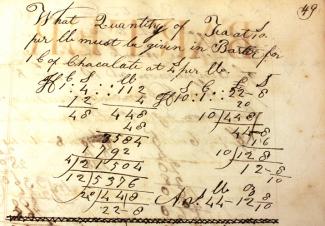 49
What Quantity of Tea at 10s.
per lb must be given in Barter for
1 C of Chocalate at 4s per lb.
C S lb S C £ S
If 1 : 4 : : 112 If 10 : 1 : : 22-8
12 4 20
48 448 10 | 448
48 44-8
3584 16
1792 10 | 128
4 | 21504 12-8
12 | 5376 10
20 | 448 lb oz
22-8 Ans. 44-12 8/10